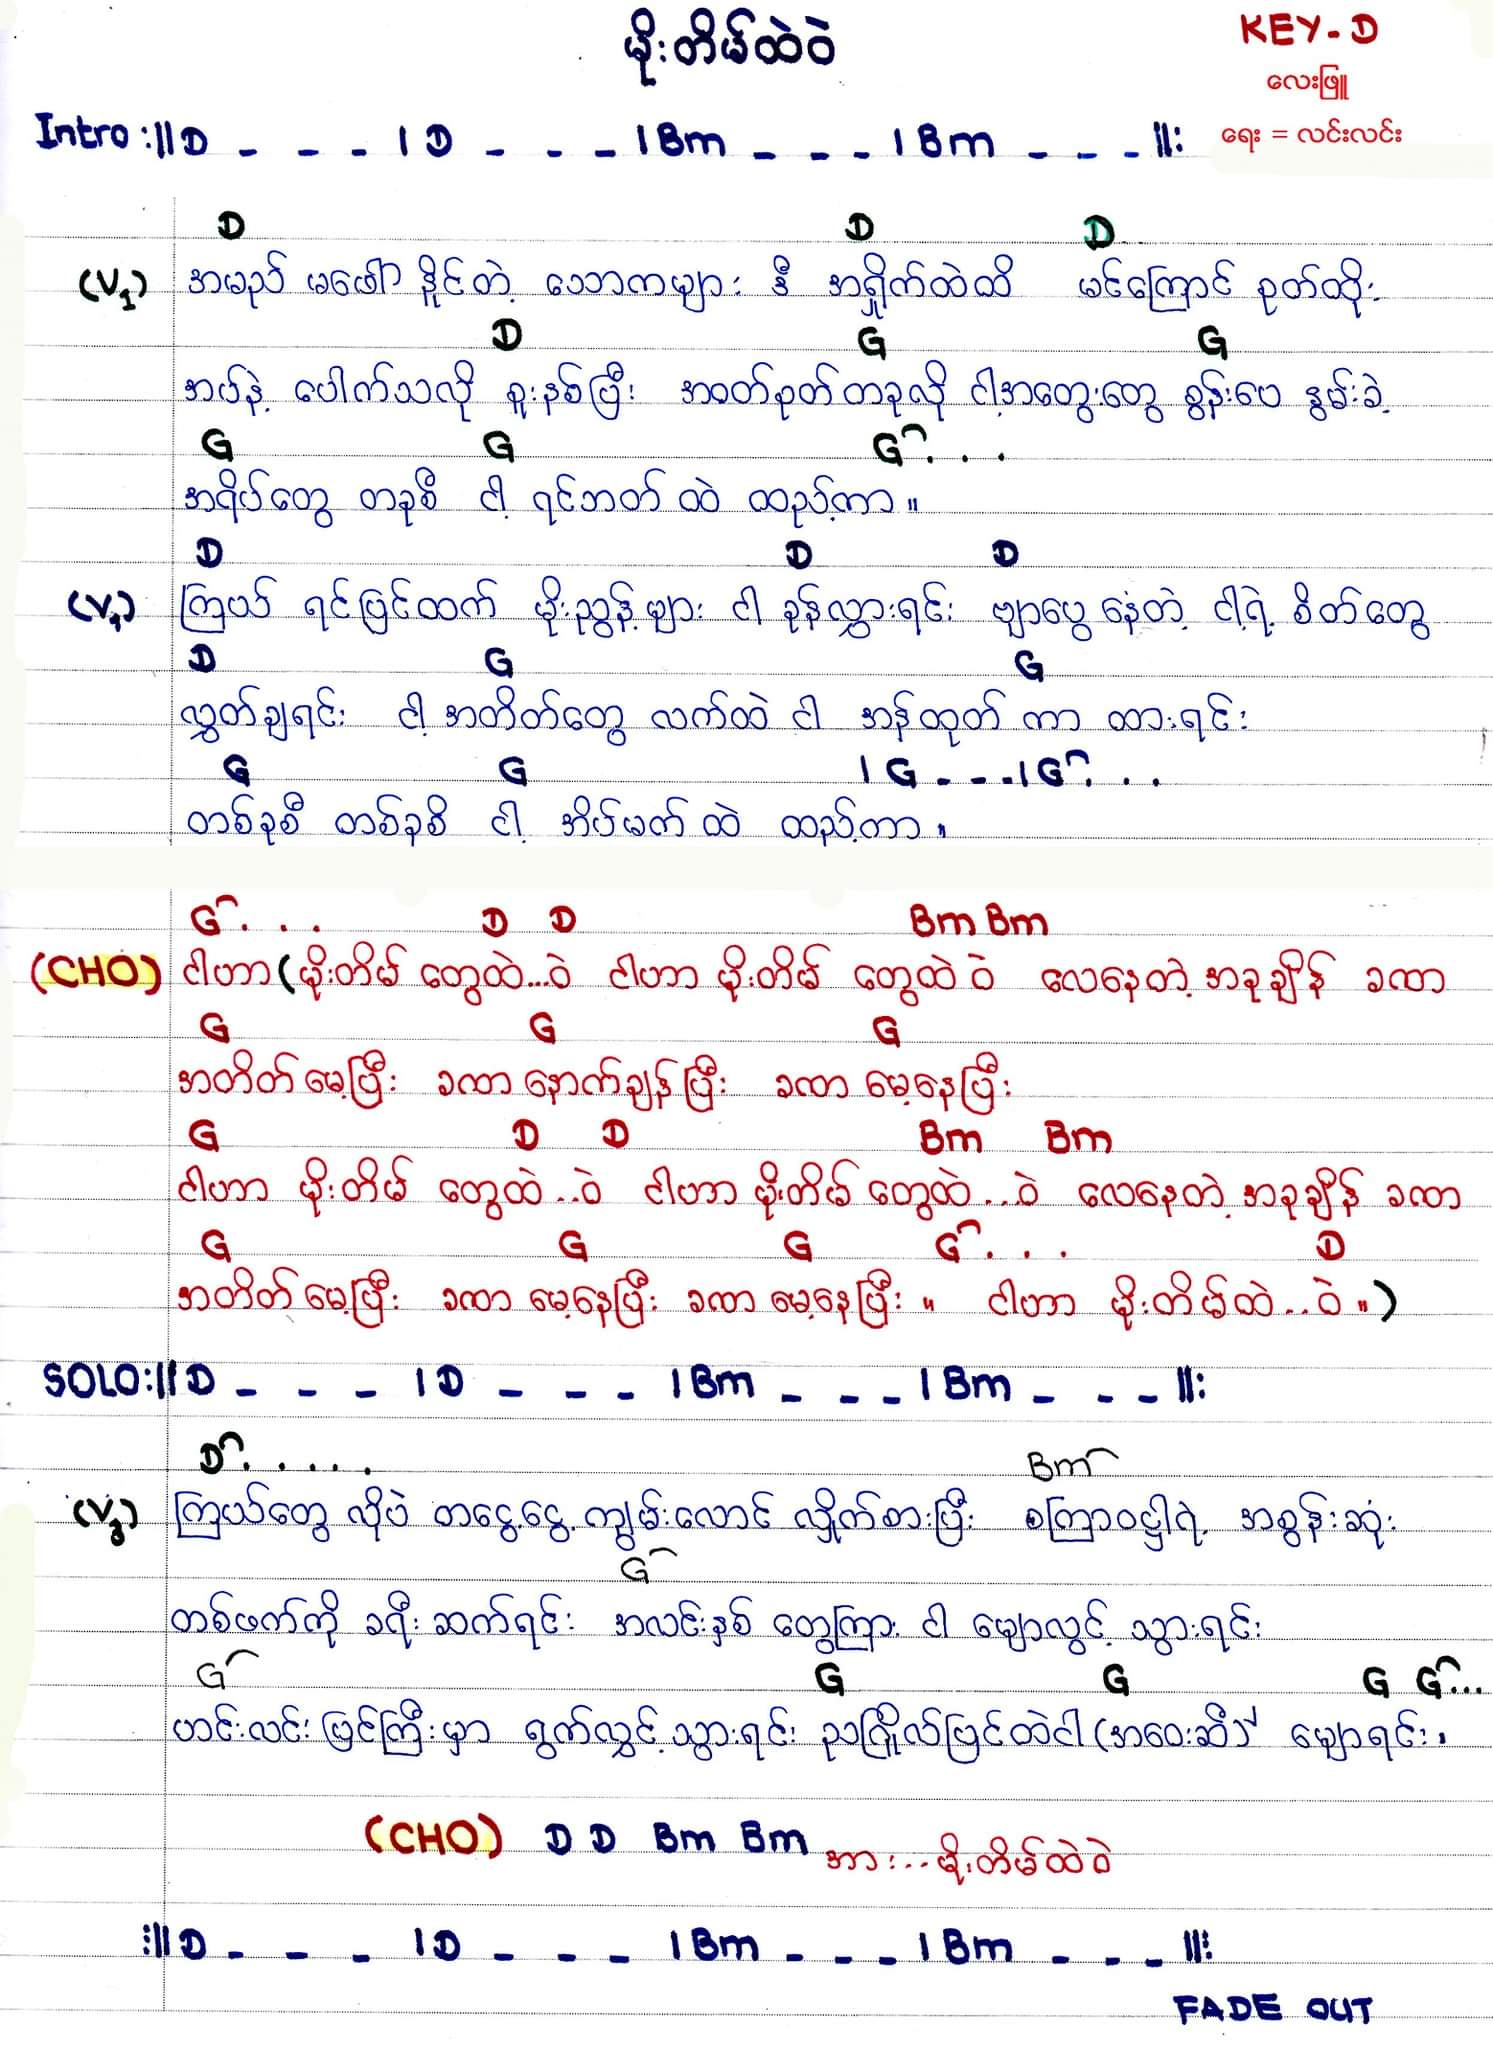 မိုးတိမ်ထဲဝဲ
KEY-D
လေးဖြူ
ရေး = လင်းလင်း
Intro :||D _ _ _ | D _ _ _ | Bm _ _ _ | Bm _ _ _ ||:
D D D
(V1) အမည် မဖော် နိုင်တဲ့ သောကများ ဒီ အရှိုက်ထဲထိ မင်ကြောင် စုတ်ထိုး
D G G
အပ်နဲ့ ပေါက်သလို စူးနစ်ပြီး အဝတ်စုတ်တခုလို ငါ့အတွေးတွေ စွန်းပေ နွမ်းခဲ့
G G G . . .
အရိပ်တွေ တခုစီ ငါ့ ရင်ဘတ် ထဲ ထည့်ကာ ။
D D D
ကြယ် ရင်ပြင်ထက် မိုးညွန့်များ ငါ ခုန်လွှားရင်း ဗျာပွေ နေတဲ့ ငါ့ရဲ့ စိတ်တွေ
D G G
လွှတ်ချရင်း ငါ့ အတိတ်တွေ လက်ထဲ ငါ အန်ထုတ် ကာ ထားရင်း
G G | G _ _ _ | G . . .
တစ်ခုစီ တစ်ခုစီ ငါ့ အိပ်မက် ထဲ ထည့်ကာ ။
G . . . D D Bm Bm
(CHO) ငါဟာ (မိုးတိမ် တွေထဲ...ဝဲ ငါဟာ မိုးတိမ် တွေထဲ ဝဲ လေနေတဲ့ အခုချိန် ခဏ
G G G
အတိတ်မေ့ပြီး ခဏ နောက်ချန်ပြီး ခဏ မေ့နေပြီး
G D D Bm Bm
ငါဟာ မိုးတိမ် တွေထဲ..ဝဲ ငါဟာ မိုးတိမ် တွေထဲ...ဝဲ လေနေတဲ့ အခုချိန် ခဏ
G G G G . . . D
အတိတ်မေ့ပြီး ခဏ မေ့နေပြီး ခဏ မေ့နေပြီး ။ ငါဟာ မိုးတိမ်ထဲ..ဝဲ ။)
SOLO:||D _ _ _ | D _ _ _ | Bm _ _ _ | Bm _ _ _ ||:
D . . . . . Bm
ကြယ်တွေ လိုပဲ တငွေ့ငွေ့ ကျွမ်းလောင် လှိုက်စားပြီး စကြာဝဠာရဲ့ အစွန်းဆုံး
G
တစ်ဖက်ကို ခရီး ဆက်ရင်း အလင်းနှစ် တွေကြား ငါ မျောလွင့် သွားရင်း
G G G G G...
ဟင်းလင်း ပြင်ကြီးမှာ ရွက်လွှင့် သွားရင်း ညသြိုလ်ပြင်ထဲငါ (အဝေးဆီ) မျောရင်း ။
(CHO) D D Bm Bm အား... မိုးတိမ်ထဲဝဲ
:||D _ _ _ | D _ _ _ | Bm _ _ _ | Bm _ _ _ ||:
FADE OUT